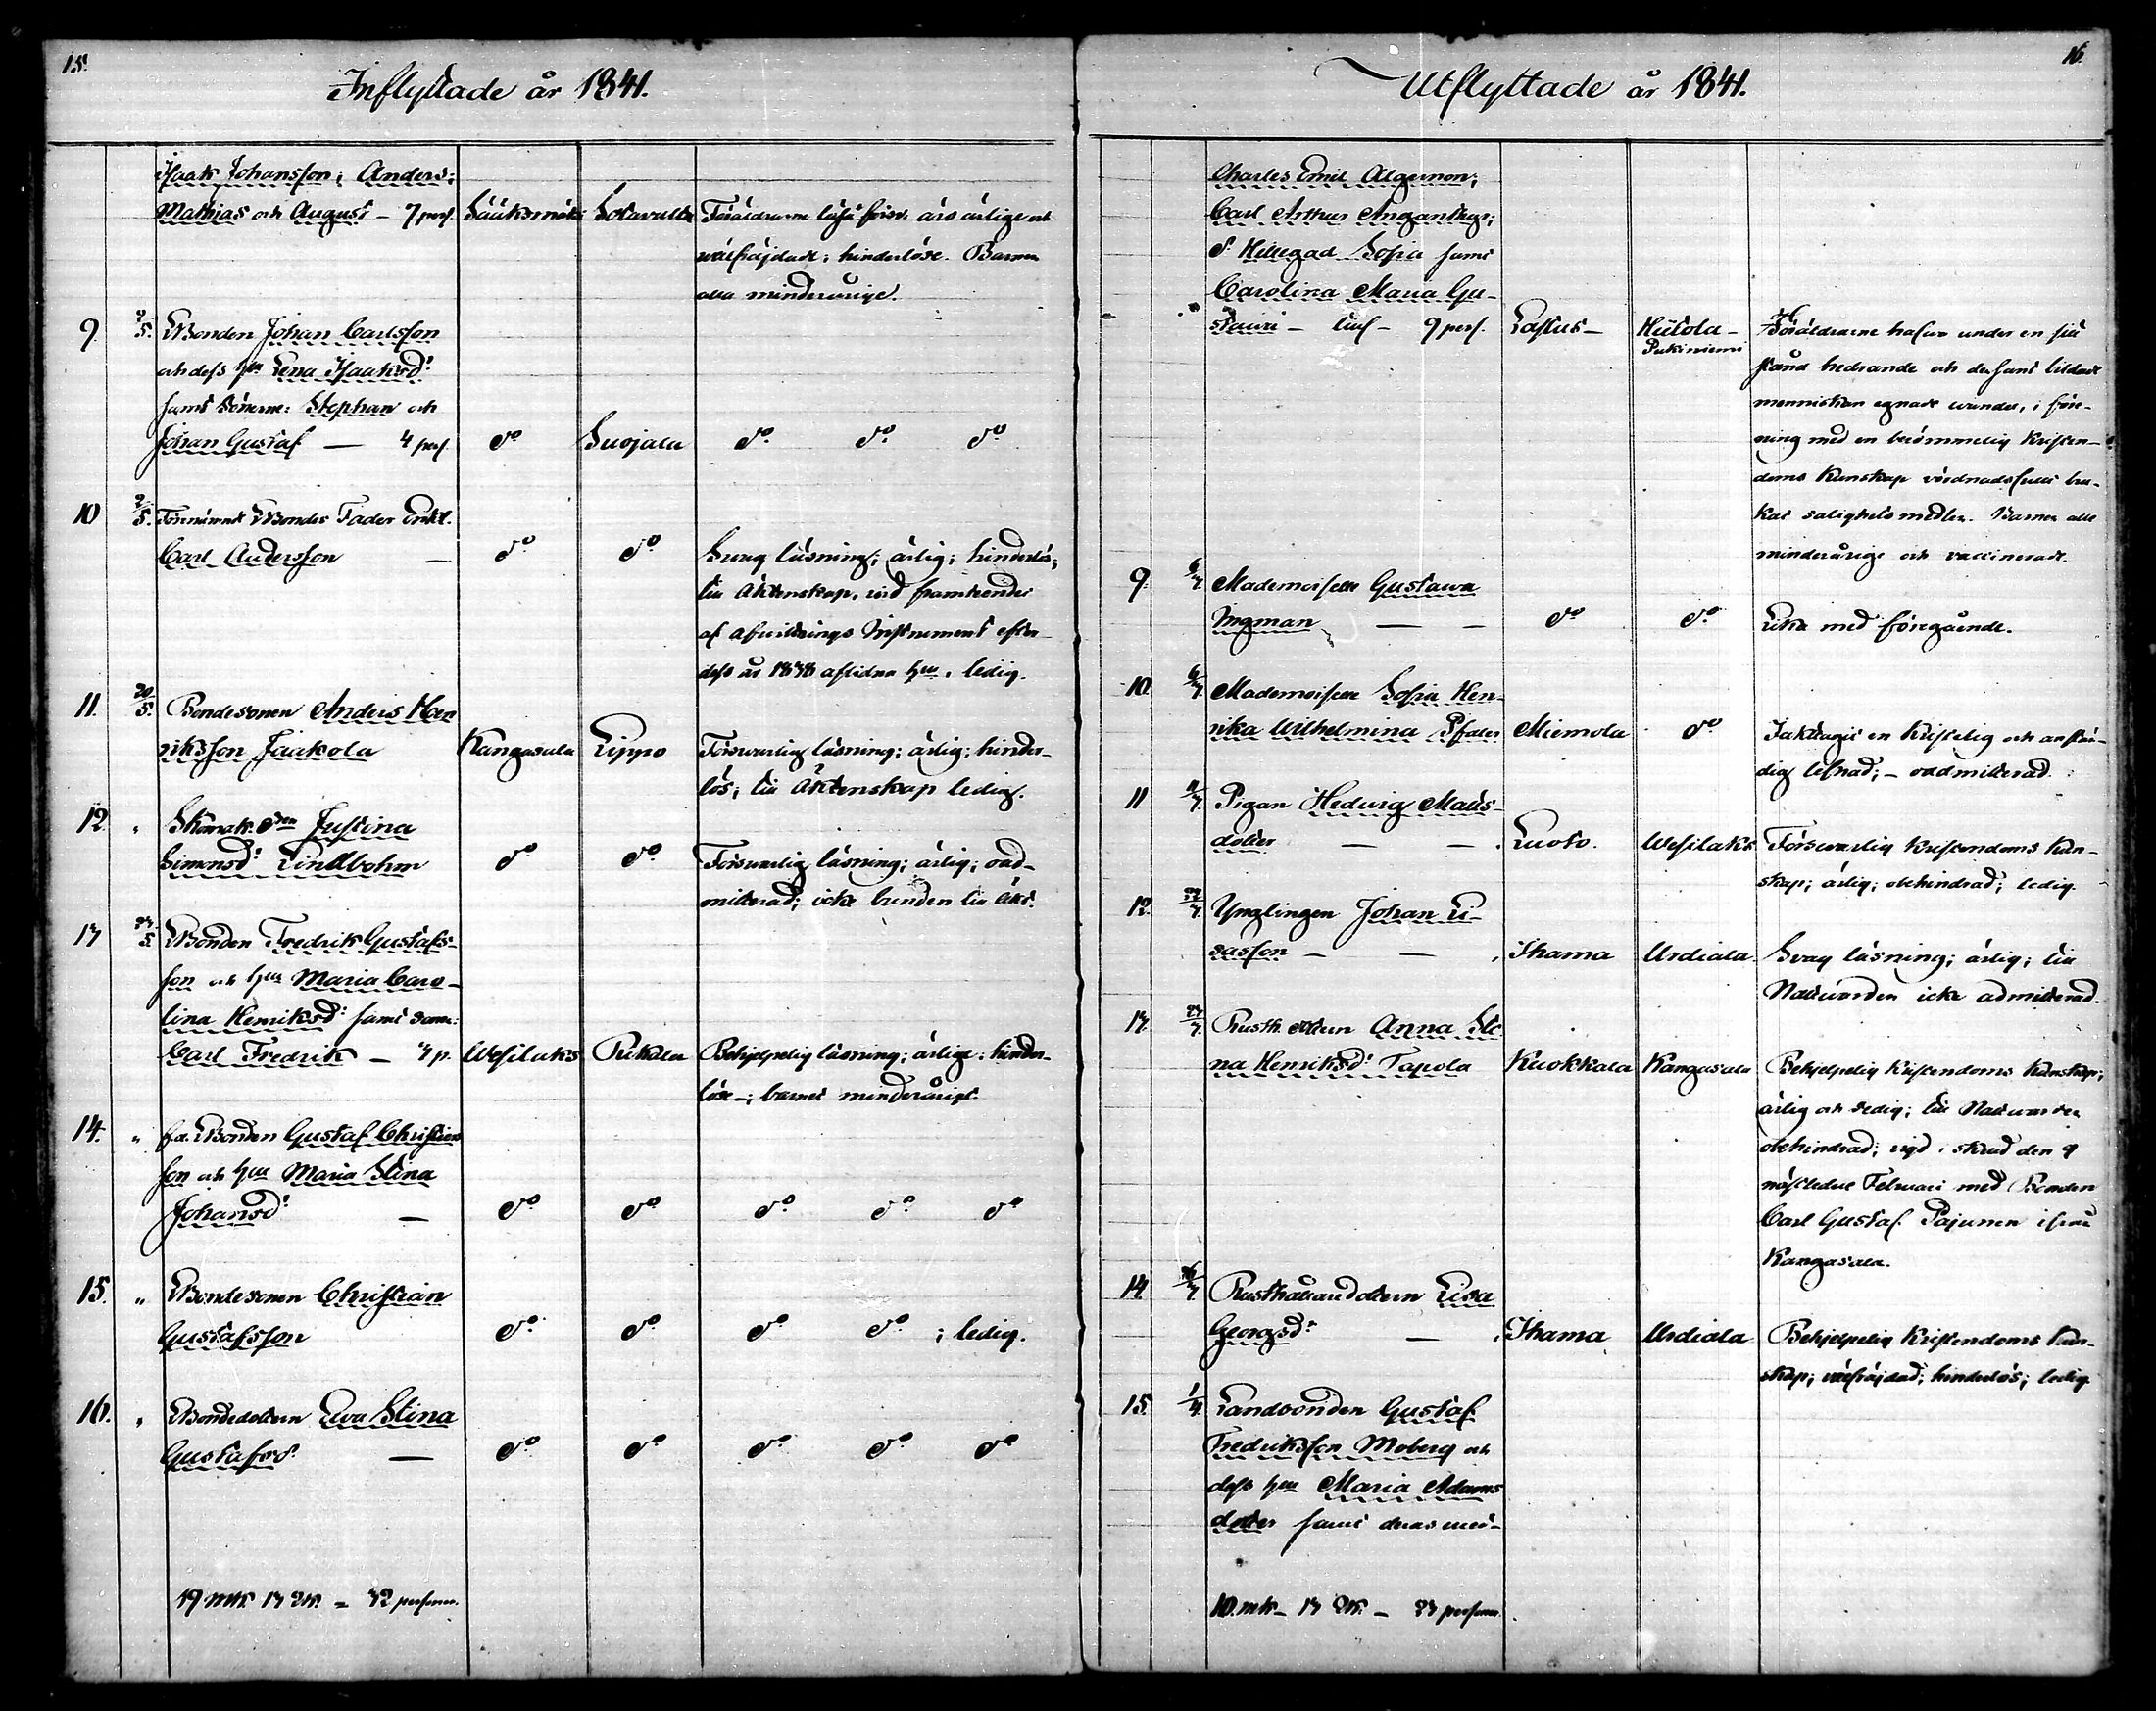 15.
Inflyttade år 1841.
Isaak Johansson; Anders;
Mathias och August – 7 pers. Sääksmäki Sotavalta Föräldrarne läsa försv. äro ärlige och
välfräjdade; hinderlöse. Barnen
alla minderårige.
9. 2/5. Bonden Johan Carlsson
och dess hu Lena Isaaksd:
samt sönerne: Stephan och
Johan Gustaf — 4 pers. do Suojala do do do
10 2/5. Förenämnde Bondes Fader Enkl.
Carl Andersson — do do Svag läsning; ärlig; hinderlös;
till äktenskap, vid framteende
af afvittrings Instrument efter
dess år 1838 aflidna hu, ledig.
11. 20/5. Bondesonen Anders Hen
riksson Jaakola Kangasala Lippo Försvarlig läsning; ärlig; hinder-
lös; till Äktenskap ledig.
12. " Skomak. Justina
Simonsd: Lindbohm do do Försvarlig läsning; ärlig; oad-
mitterad; icke bunden till äkt.
13 23/5 Bonden Fredrik Gustafs-
son och hu Maria Caro-
lina Henriksd: samt sonen:
Carl Fredrik – 3 p. Wesilaks Pukala Behjelpelig läsning; ärlige; hinder-
löse –; barnet minderårigt.
14. " f.d. Bonden Gustaf Christians
son och hu Maria Stina
Johansd: — do do do do do
15. " Bondesonen Christian
Gustafsson do do do do ; ledig.
16. " Bondedottren Eva Stina
Gustafsd: — do do do do do
19 mk. 13 qk. = 32 personer.
16.
Utflyttade år 1841.
Charles Emil Algernon;
Carl Arthur Angantyr;
d: Hillegad Sofia samt
Carolina Maria Gu-
stava – – 9 pers. Lastus – Hiitola –
Pukiniemi Föräldrarne hafva under en sitt
stånd hedrande och der samt bildade
menniskan egnade vandel, i före-
ning med en berömmelig Kristen-
doms Kunskap vördnadsfullt bru-
kat salighetsmedlen. Barnen alla
minderårige och vaccinerade.
9. 6/7 Mademoiselle Gustava
Ingman — – do do Lika med föregående.
10. 6/7 Mademoiselle Sofia Hen-
rika Wilhelmina Pfaler Miemola do Iakttagit en Kristelig och anstän-
dig lefnad; – oadmitterad.
11 11/7. Pigan Hedvig Mats-
dotter — – Luoto. Wesilaks Försvarlig Kristendoms Kun-
skap; ärlig; obehindrad; ledig.
12. 22/7. Ynglingen Johan Li-
sasson – — Ihama Urdiala. Svag läsning; ärlig; till
Nattvarden icke admitterad.
13. 23/7. Rusth. dottren Anna Sti
na Henriksd: Tapola Kuokkala Kangasala Behjelpelig Kristendoms Kunskap;
ärlig och sedig; till Nattvarden
obehindrad; vigd i skrud den 9
nästledne Februari med Bonden
Carl Gustaf Pajunen ifrån
Kangasala.
14. 26/7 Rusthållaredottren Lisa
Georgsd: — Ihama Urdiala Behjelpelig Kristendoms Kun-
skap; välfräjdad; hinderlös; ledig
15. Landbonden Gustaf
Fredriksson Moberg och
dess hu Maria Adams
dotter samt deras
10. mk – 13 qk. – 23 personer.